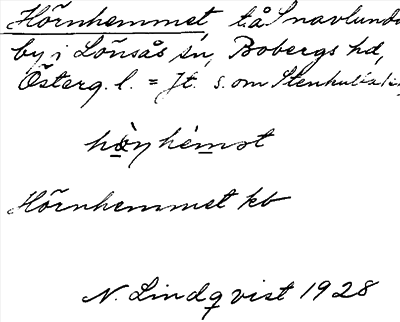 Hörnhemmet, t.å Snavlunda
by i Lönsås sn, Bobergs hd,
Österg. l. = Jt. s. om Stenhult
hö̀ṇhémot
Hörnhemmet kb
N. Lindqvist 1928